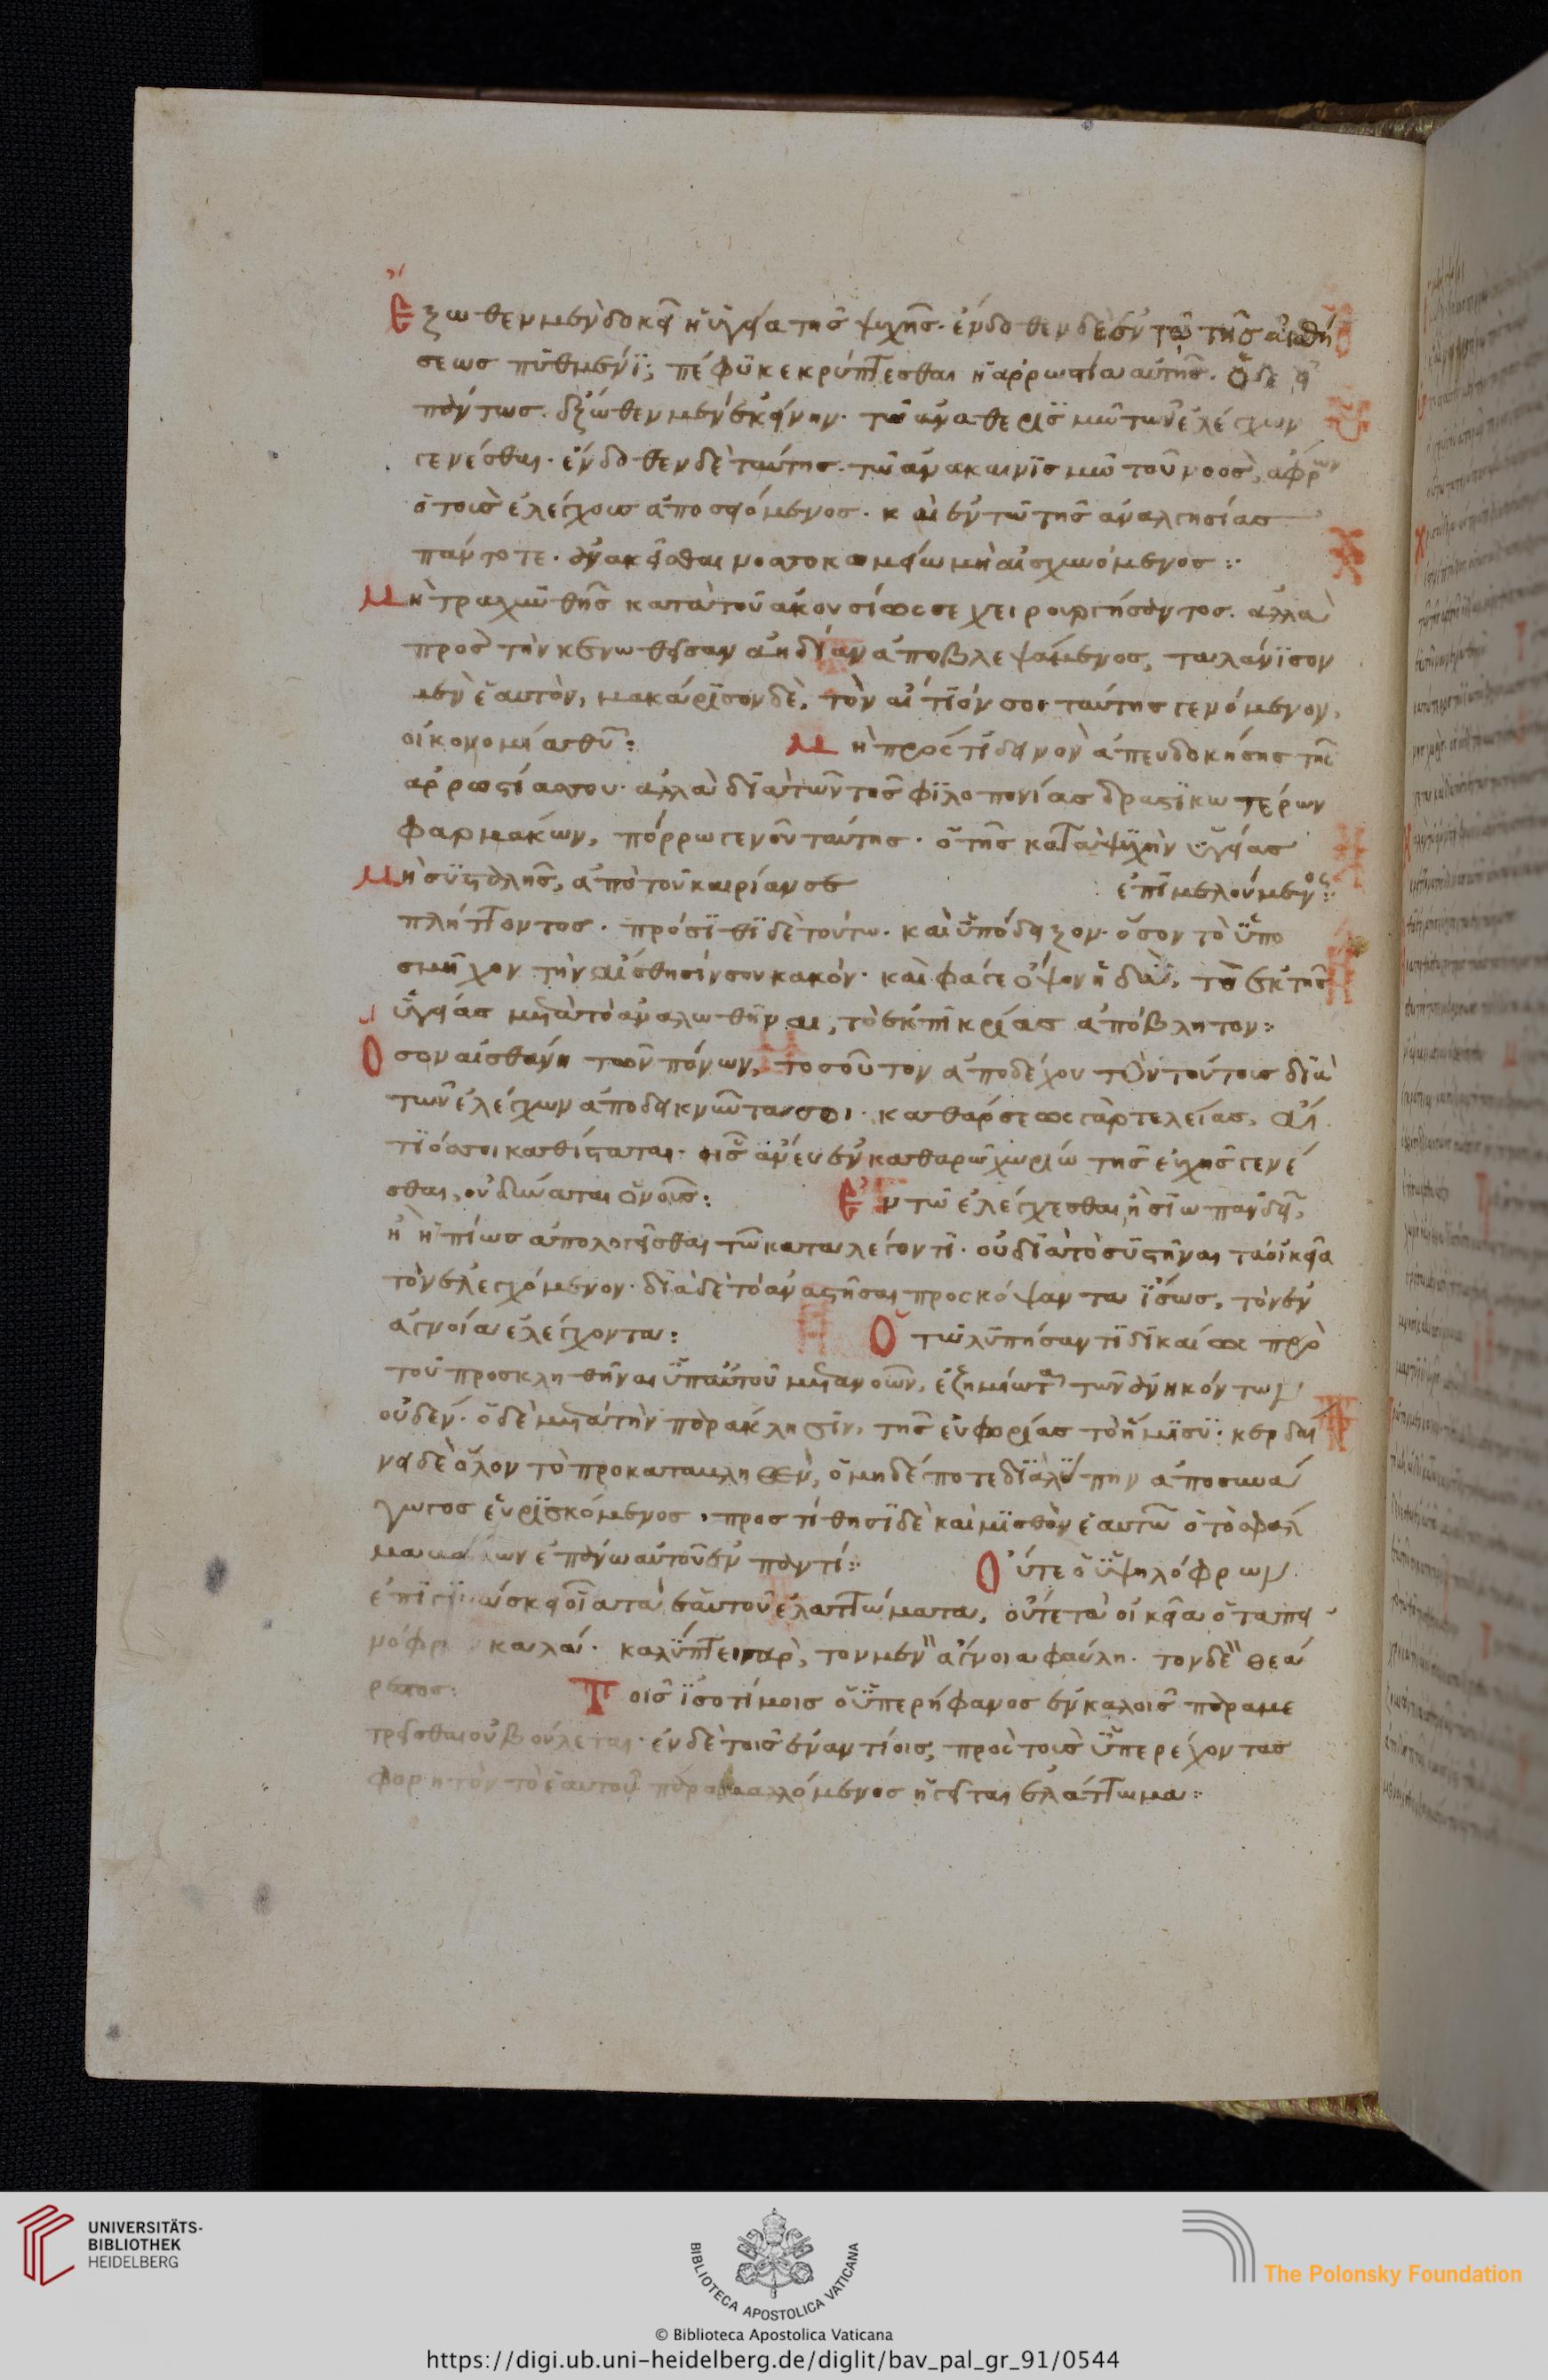 Ἔξωθεν μὲν δοκεῖ ἡ ὑγεία τῆς ψυχῆς. ἔνδοθεν δὲ ἐν τῷ τῆς αἰσθή
σεως πυθμένϊ; πέφϋκε κρύπτεσθαι ἡ ἀρρωστία αὐτῆς. ὁ δὲ
πάντως. ἔξωθεν μὲν ἐκείνην. τῷ ἀναθερισμῷ τῶν ἐλέγχων
γενέσθαι. ἔνδοθεν δὲ ταύτης. τῷ ἀνακαινϊσμῷ τοῦ νοὸς, ἄφρων
ὁ τοὺς ἐλέγχους ἀποσειόμενος. καὶ ἐν τῷ τῆς ἀναλγησίας
πάντοτε. ἀνακεῖσθαι νοσοκομείω μὴ αἰσχυνόμενος :
Μὴ τραχυνθῆς κατὰ τοῦ ἀκουσίως σε χειρουργήσαντος. ἀλλὰ
πρὸς τὴν κενωθεῖσαν ἀηδίαν ἀποβλεψάμενος, ταλάνϊσον
μὲν ἑαυτὸν, μακάρϊσον δὲ, τὸν αἴτϊόν σοι ταύτης γενόμενον,
οἰκονομίας θυ : Μὴ πρὸς τὶ δεινὸν ἀπευδοκήσης τῆς
ἀρρωστίας σου. ἀλλὰ διὰ τῶν τῆς φϊλοπονίας δραστϊκωτέρων
φαρμάκων, πόρρω γενοῦ ταύτης. ὁ τῆς κατὰ ψυχὴν ὑγείας
Μὴ συστολῆς, ἀπὸ τοῦ καιρίαν σε ἐπϊμελούμενος :
πλήττοντος. πρόσϊθϊ δὲ τούτω. καὶ ὑπόδειξον. ὅσον τὸ ὑπο
σμῆχον τὴν αἴσθησίν σου κακόν. καὶ φάγε ὄψον ἡδὺ, τὸ ἐκ τῆς
ὑγείας μετὰ τὸ ἀναλωθῆναι, τὸ ἐκ πϊκρίας ἀπόβλητον :
Ὅσον αἰσθάνη τῶν πόνων, τοσοῦτον ἀποδέχου τὸν τούτους διὰ
τῶν ἐλέγχων ἀποδεικνῦντα σοι. καθάρσεως γὰρ τελείας, αἴ
τϊός σοι καθίσταται. ἧς ἄνευ ἐν καθαρῶ χωρίω τῆς εὐχῆς γενέ
σθαι, οὐ δύναται ὁ νοῦς : Ἐν τῷ ἐλέγχεσθαι, ἢ σϊωπᾶν δεῖ,
ἢ ἠπίως ἀπολογεῖσθαι τῷ καταλέγοντϊ. οὐ διὰ τὸ συστῆναι τὰ οἰκεῖα
τὸν ἐλεγχόμενον. διὰ δὲ τὸ ἀναστῆσαι προσκόψαντα ἴσως, τὸν ἐν
ἀγνοία ἐλέγχοντα : Ὁ τῷ λϋπήσαντϊ δικαίως πρὸ
τοῦ προσκληθῆναι ὑπ' αὐτοῦ μετανοῶν, ἐζημίωται τῶν ἀνηκόντων
οὐδέν. ὁ δὲ μετὰ τὴν παράκλησϊν, τῆς εὐφορίας τὸ ἥμϊσϋ. κερδαί
νει δὲ ὅλον τὸ προκαταβληθὲν, ὁ μηδέποτε διὰ λύπην ἀποσυνά
γωγος εὑρϊσκόμενος. προστίθησϊ δὲ καὶ μϊσθὸν ἑαυτῷ ὁ τὸ σφάλ
ἐπάνω αὐτοῦ ἐν παντί : Οὔτε ὁ ὑψηλόφρων
ἐπϊγινώσκει τὰ ἑαυτοῦ ἐλαττώματα, οὔτε τὰ οἰκεῖα ὁ ταπει
νόφρων καλά. καλύπτει γὰρ, τὸν μὲν ἄγνοια φαύλη. τὸν δὲ θεά
ρεστος : Τοῖς ϊσοτίμοις ὁ ὑπερήφανος ἐν καλοῖς παραμε
τρεῖσθαι οὐ βούλεται. ἐν δὲ τοῖς ἐναντίοις, πρὸς τοὺς ὑπερέχοντας
φορητὸν τὸ ἑαυτοῦ παραβαλλόμενος ἡγεῖται ἐλάττωμα :
UNIVERSITÄTS-
BIBLIOTHEK
HEIDELBERG
BIBLIOTECA APOSTOLICA VATICANA
The Polonsky Foundation
© Biblioteca Apostolica Vaticana
https://digi.ub.uni-heidelberg.de/diglit/bav_pal_gr_91/0544